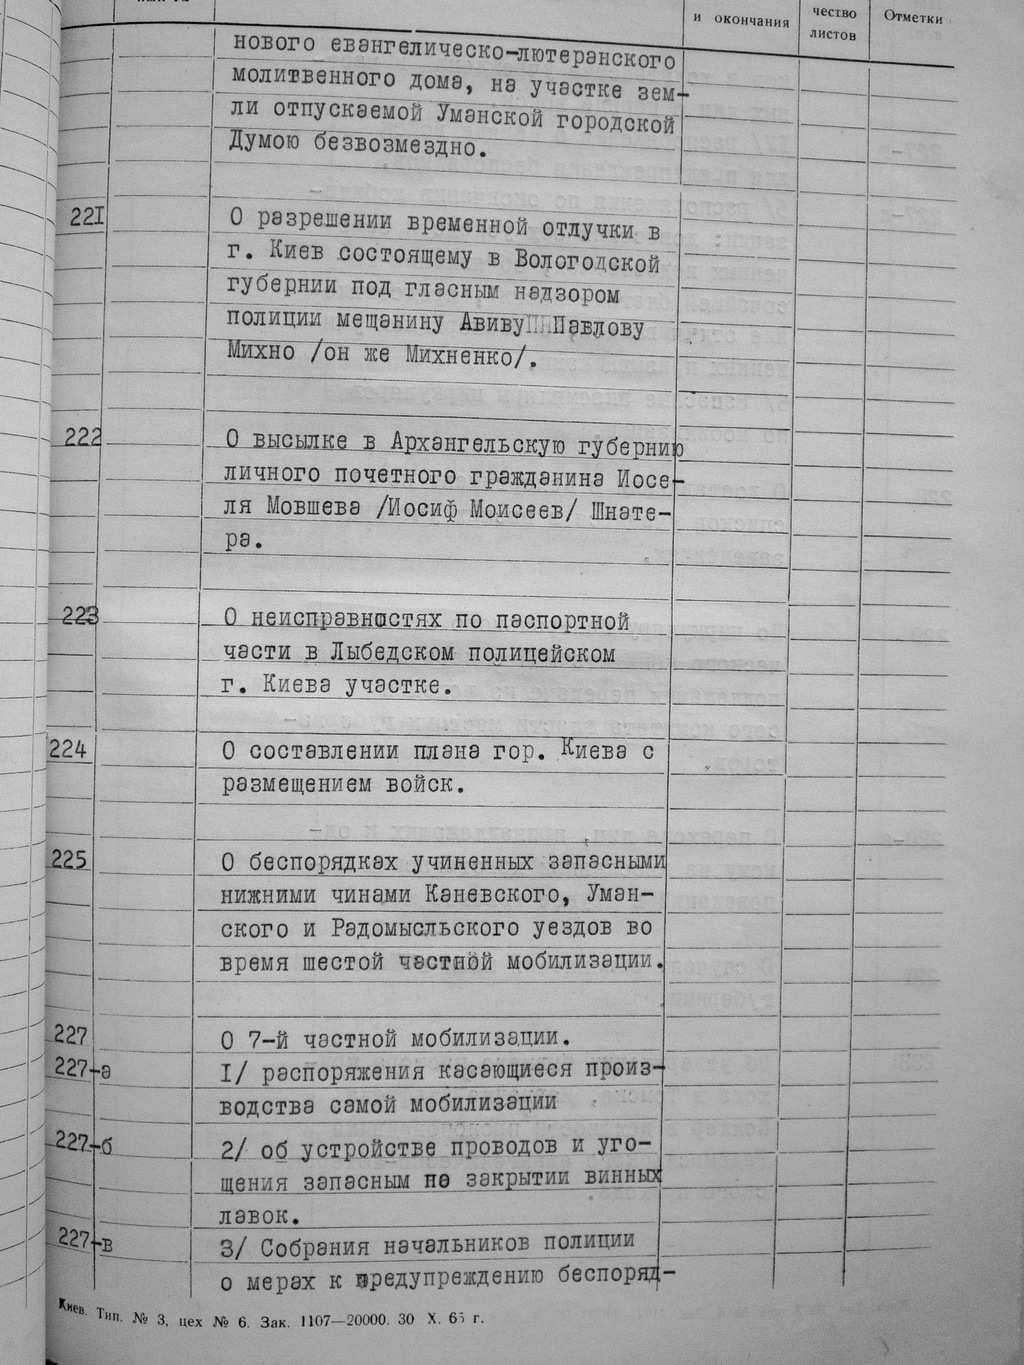 и окончания
чество
листов
Отметки
нового евангелическо-лютеранского
молитвенного дома, на участке зем-
ли отпускаемой Уманской городской
Думою безвозмездно.
221
О разрешении временной отлучки в
г. Киев состоящему в Вологодской
губернии под гласным надзором
полиции мещанину Авиву Павлову
Михно /он же Михненко/.
222
О высылке в Архангельскую губернию
личного почетного гражданина Иосе-
ля Мовшева /Иосиф Моисеев/ Шнате-
ра.
223
О неисправностях по паспортной
части в Лыбедском полицейском
г. Киева участке.
224
О составлении плана гор. Киева с
размещением войск.
225
О беспорядках учиненных запасными
нижними чинами Каневского, Уман-
ского и Радомысльского уездов во
время шестой частной мобилизации.
227
О 7-й частной мобилизации.
227-а
1/ распоряжения касающиеся произ-
водства самой мобилизации
227-б
2/ об устройстве проводов и уго-
щения запасным по закрытии винных
лавок.
227-в
3/ Собрания начальников полиции
о мерах к предупреждению беспоряд-
Киев. Тип. № 3, цех № 6. Зак. 1107—20000. 30 X. 65 г.